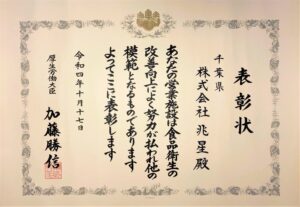 表彰状
千葉県
株式会社 兆星 殿
あなたの営業施設は食品衛生の
改善向上によく努力が払われ他の
模範となるものであります
よってここに表彰します
令和四年十月十七日
厚生労働大臣
加藤勝信